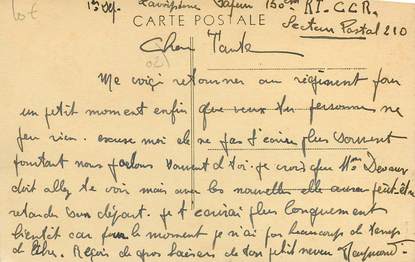 1re Dep. Sapeur 150em RT-CCR.
CARTE POSTALE
Secteur Postal 210
Cher Tante
Me voici retourner au régiment pour
un petit moment enfin que veux tu personnes ne
peu rien. excuse moi de ne pas t'écrire plus souvent
pourtant nous parlons souvent de toi. je crois que Mme Devaux
doit allez te voir mais avec les nouvelles elle aura peut-être
retarder son départ. je t'écrirai plus longuement
bientôt car pour le moment je n'ai pas beaucoup de temps
de libre. Reçois de gros baisers de ton petit neveu Raymond.